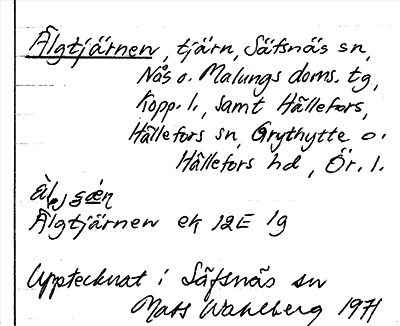 Älgtjärnen, tjärn, Säfsnäs sn,
Nås o. Malungs doms. tg,
Kopp. l., samt Hällefors,
Hällefors sn, Grythytte o.
Hällefors hd, Ör. l.
Älgtjärnen ek 12E 1g
Upptecknat i Säfsnäs sn
Mats Wahlberg 1971